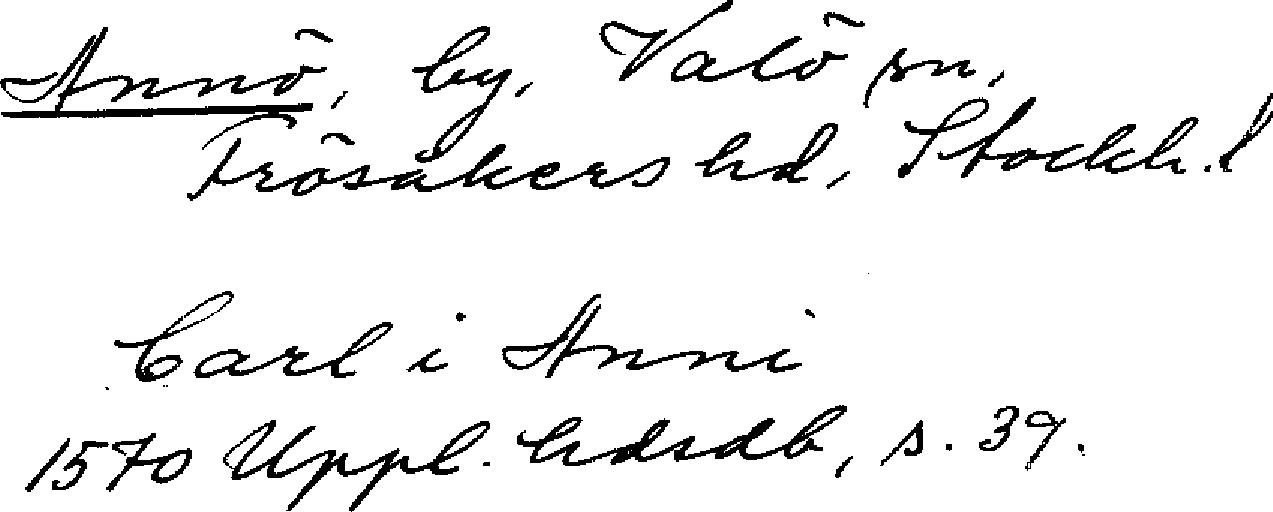 Annö, by, Valö sn,
Frösåkers hd, Stockh. l
Carl i Anni
1570 Uppl. hdsdb, s. 39.